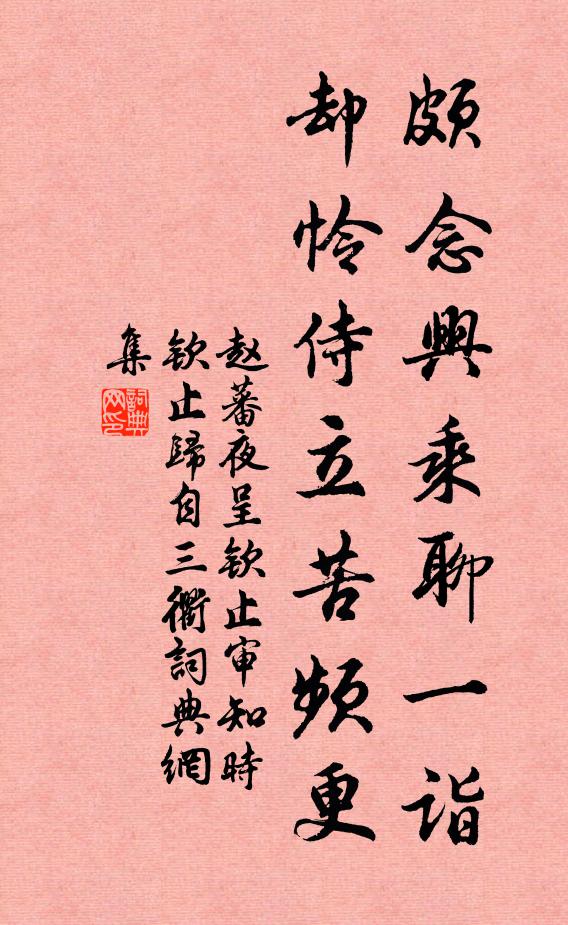 頗念興乘聊一詣
却怜侍立苦頻更
赵蕃夜呈钦止审知時
钦止歸自三衢詞典網
集
詞典网印